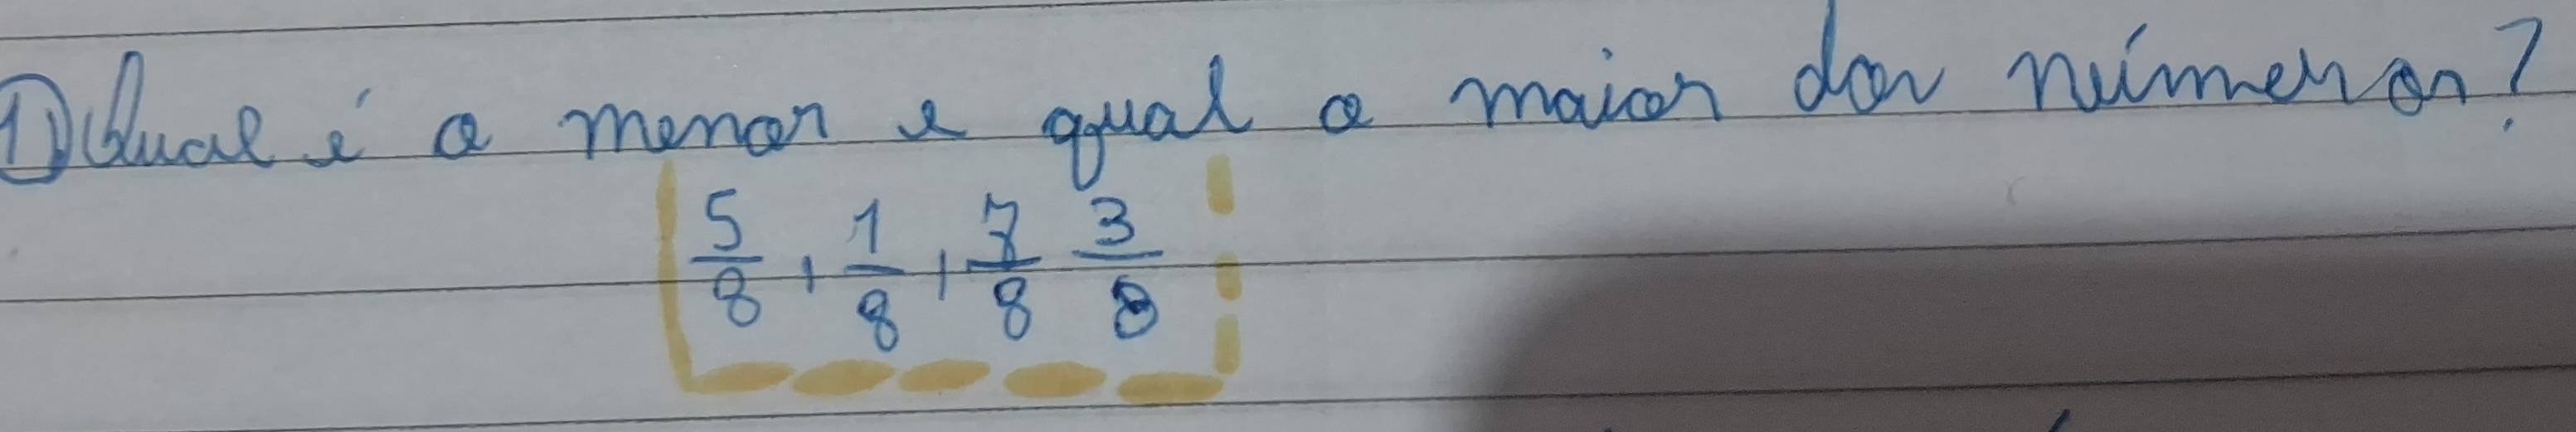 1) Qual é o menor e qual o maior dos números?
5/8, 1/8, 7/8 3/8